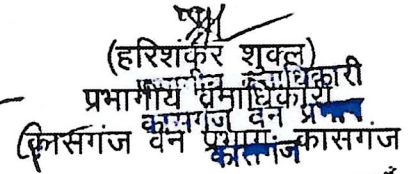 (हरिशंकर शुक्ल)
प्रभागीय वनाधिकारी
कासगंज वन प्रभाग कासगंज